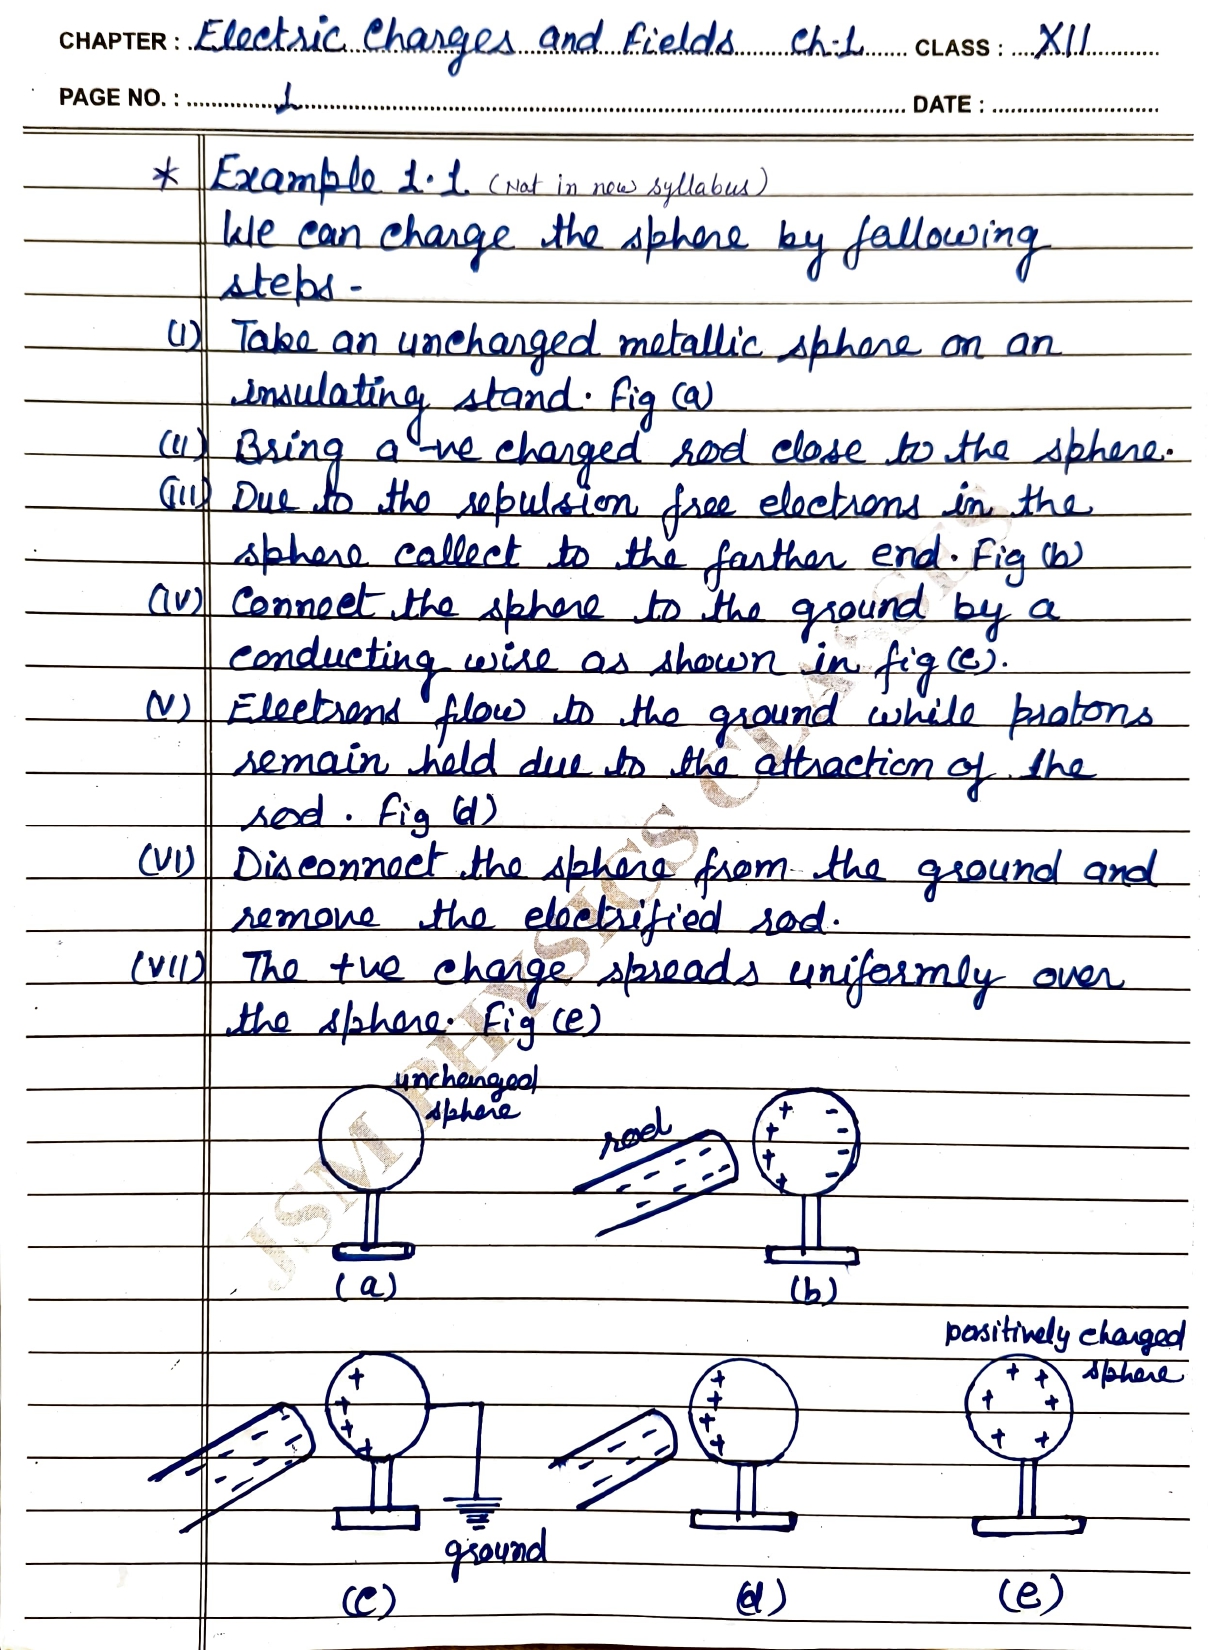 CHAPTER : Electric Charges and Fields Ch-1 CLASS : XII
PAGE NO. : 1 DATE :
* Example 1.1 (Not in new syllabus)
We can charge the sphere by following
steps -
(I) Take an uncharged metallic sphere on an
insulating stand. Fig (a)
(II) Bring a -ve charged rod close to the sphere.
(III) Due to the repulsion free electrons in the
sphere collect to the farther end. Fig (b)
(IV) Connect the sphere to the ground by a
conducting wire as shown in fig (c).
(V) Electrons flow to the ground while protons
remain held due to the attraction of the
rod. Fig (d)
(VI) Disconnect the sphere from the ground and
remove the electrified rod.
(VII) The +ve charge spreads uniformly over
the sphere. Fig (e)
uncharged
sphere
rod
(a)
(b)
positively charged
sphere
ground
(c)
(d)
(e)
JSM PHYSICS CLASSES